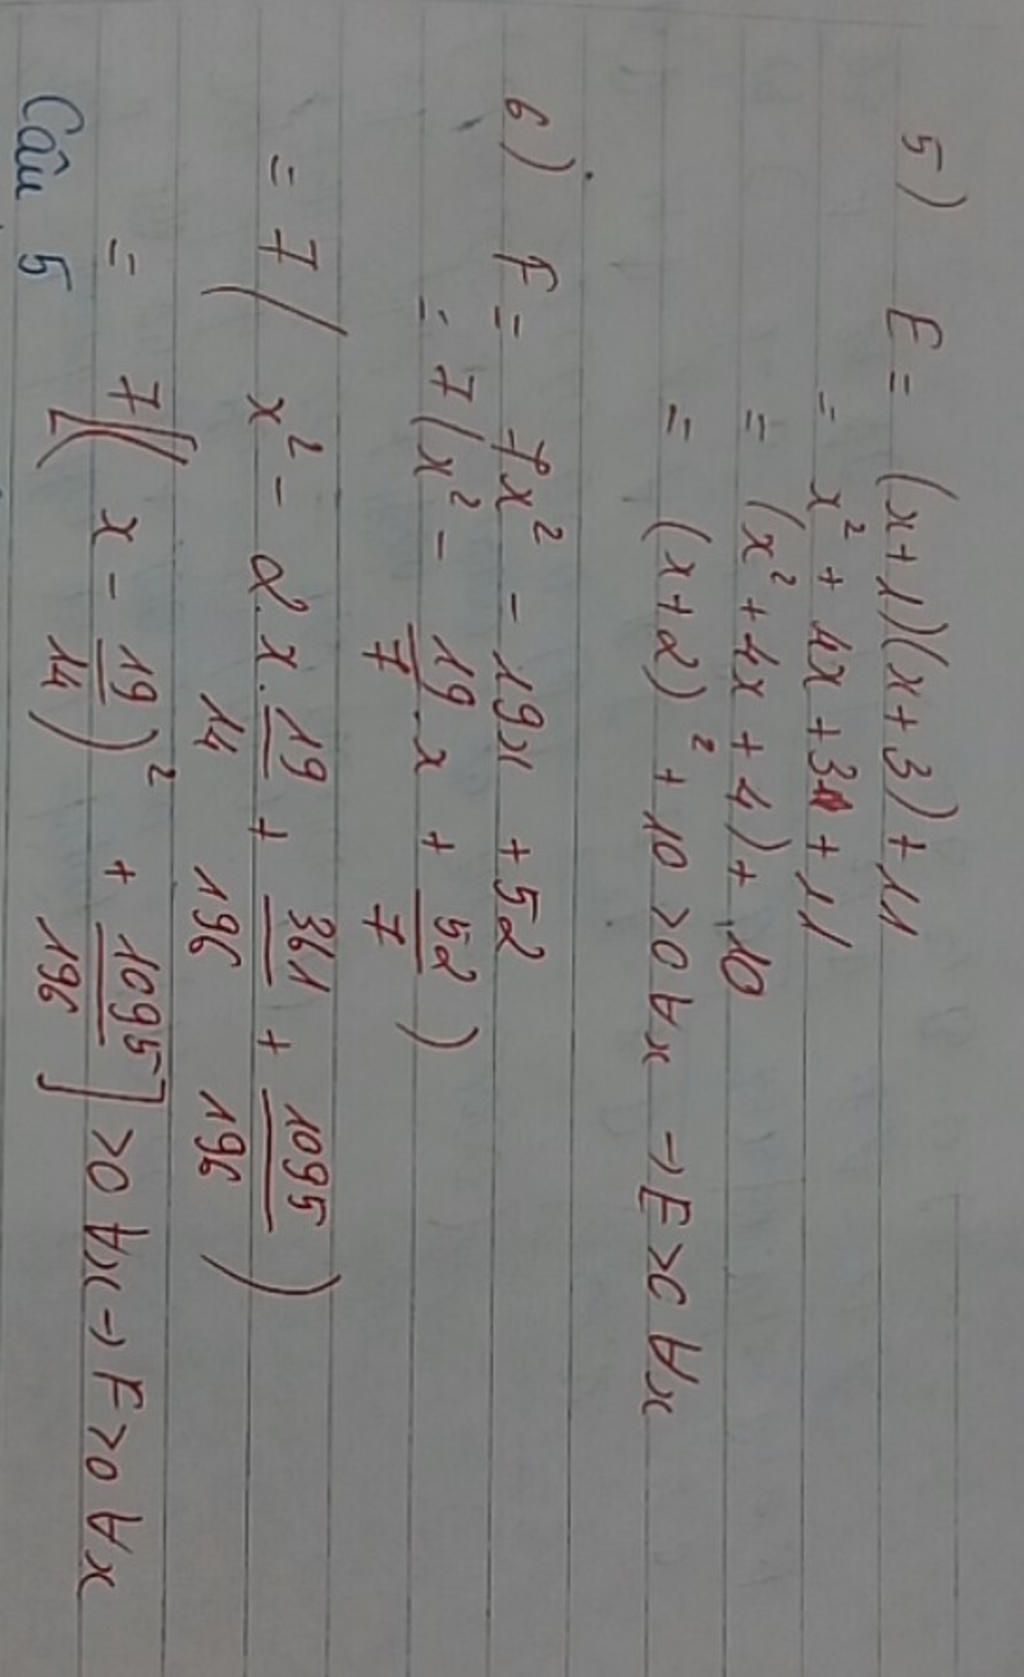 5) E = (x+1)(x+3) + 11
= x² + 4x + 3 + 11
= (x² + 4x + 4) + 10
= (x+2)² + 10 >0 ∀x → E>0 ∀x
6) F = 7x² - 19x + 52
= 7(x² - 19/7 x + 52/7)
= 7(x² - 2.x.19/14 + 361/196 + 1095/196)
= 7[(x - 19/14)² + 1095/196] >0 ∀x → F>0 ∀x
Câu 5